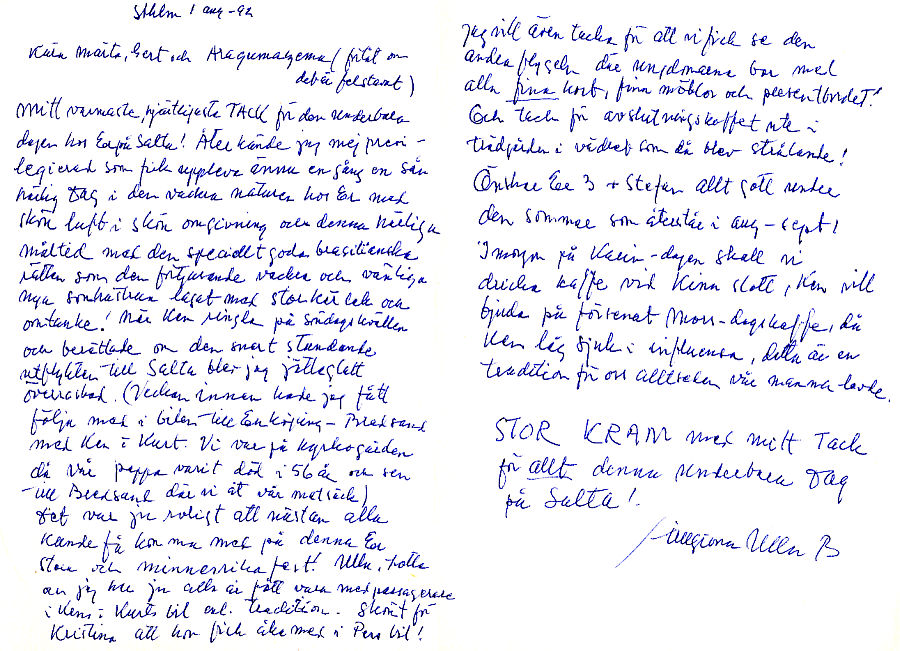 Sthlm 1 aug -92
Kära Märta, Gert och Aragumakyema (förlåt om
det är felstavat)
Mitt varmaste, hjärtligaste TACK för den underbara
dagen hos Er på Salta! Åter kände jag mej privi-
legierad som fick uppleva ännu en gång en sån
härlig dag i den vackra naturen hos Er med
skön luft i skön omgivning och denna härliga
måltid med den speciellt goda brasilianska
rätten som den förtjusande vackra och vänliga
nya sonhustrun lagat med stor kärlek och
omtanke! När Ken ringde på söndagskvällen
och berättade om den snart stundande
utflykten till Salta blev jag jätteglatt
överraskad. (Veckan innan hade jag fått
följa med i bilen till Enköping - Bredsand
med Ken i Kurt. Vi var på kyrkogården
då vår pappa varit död i 56 år och sen
till Bredsand där vi åt vår matsäck)
Det var ju roligt att nästan alla
kunde få komma med på denna Er
stora och minnesrika fest! Ulla,
an jag hur ju alla är fått vara med passagerare
i Kens i Kurts bil enl. tradition. Skönt för
Kristina att hon fick åka med i Pers bil!
Jag vill även tacka för att vi fick se den
andra flygeln där ungdomarna bor med
alla fina kort, fina möbler och presentbordet!
Och tack för avslutningskaffet ute i
trädgården i vädret som då blev strålande!
Önskar Er 3 + Stefan allt gott under
den sommar som återstår i aug - sept!
I morgon på Karin-dagen skall vi
dricka kaffe vid Kina slott, Ken vill
bjuda på försenat Mors-dagskaffe, då
Ken låg sjuk i influensa, detta är en
tradition för oss alltsedan vår mamma levde.
STOR KRAM med mitt Tack
för allt denna underbara dag
på Salta!
Tillgivna Ulla B